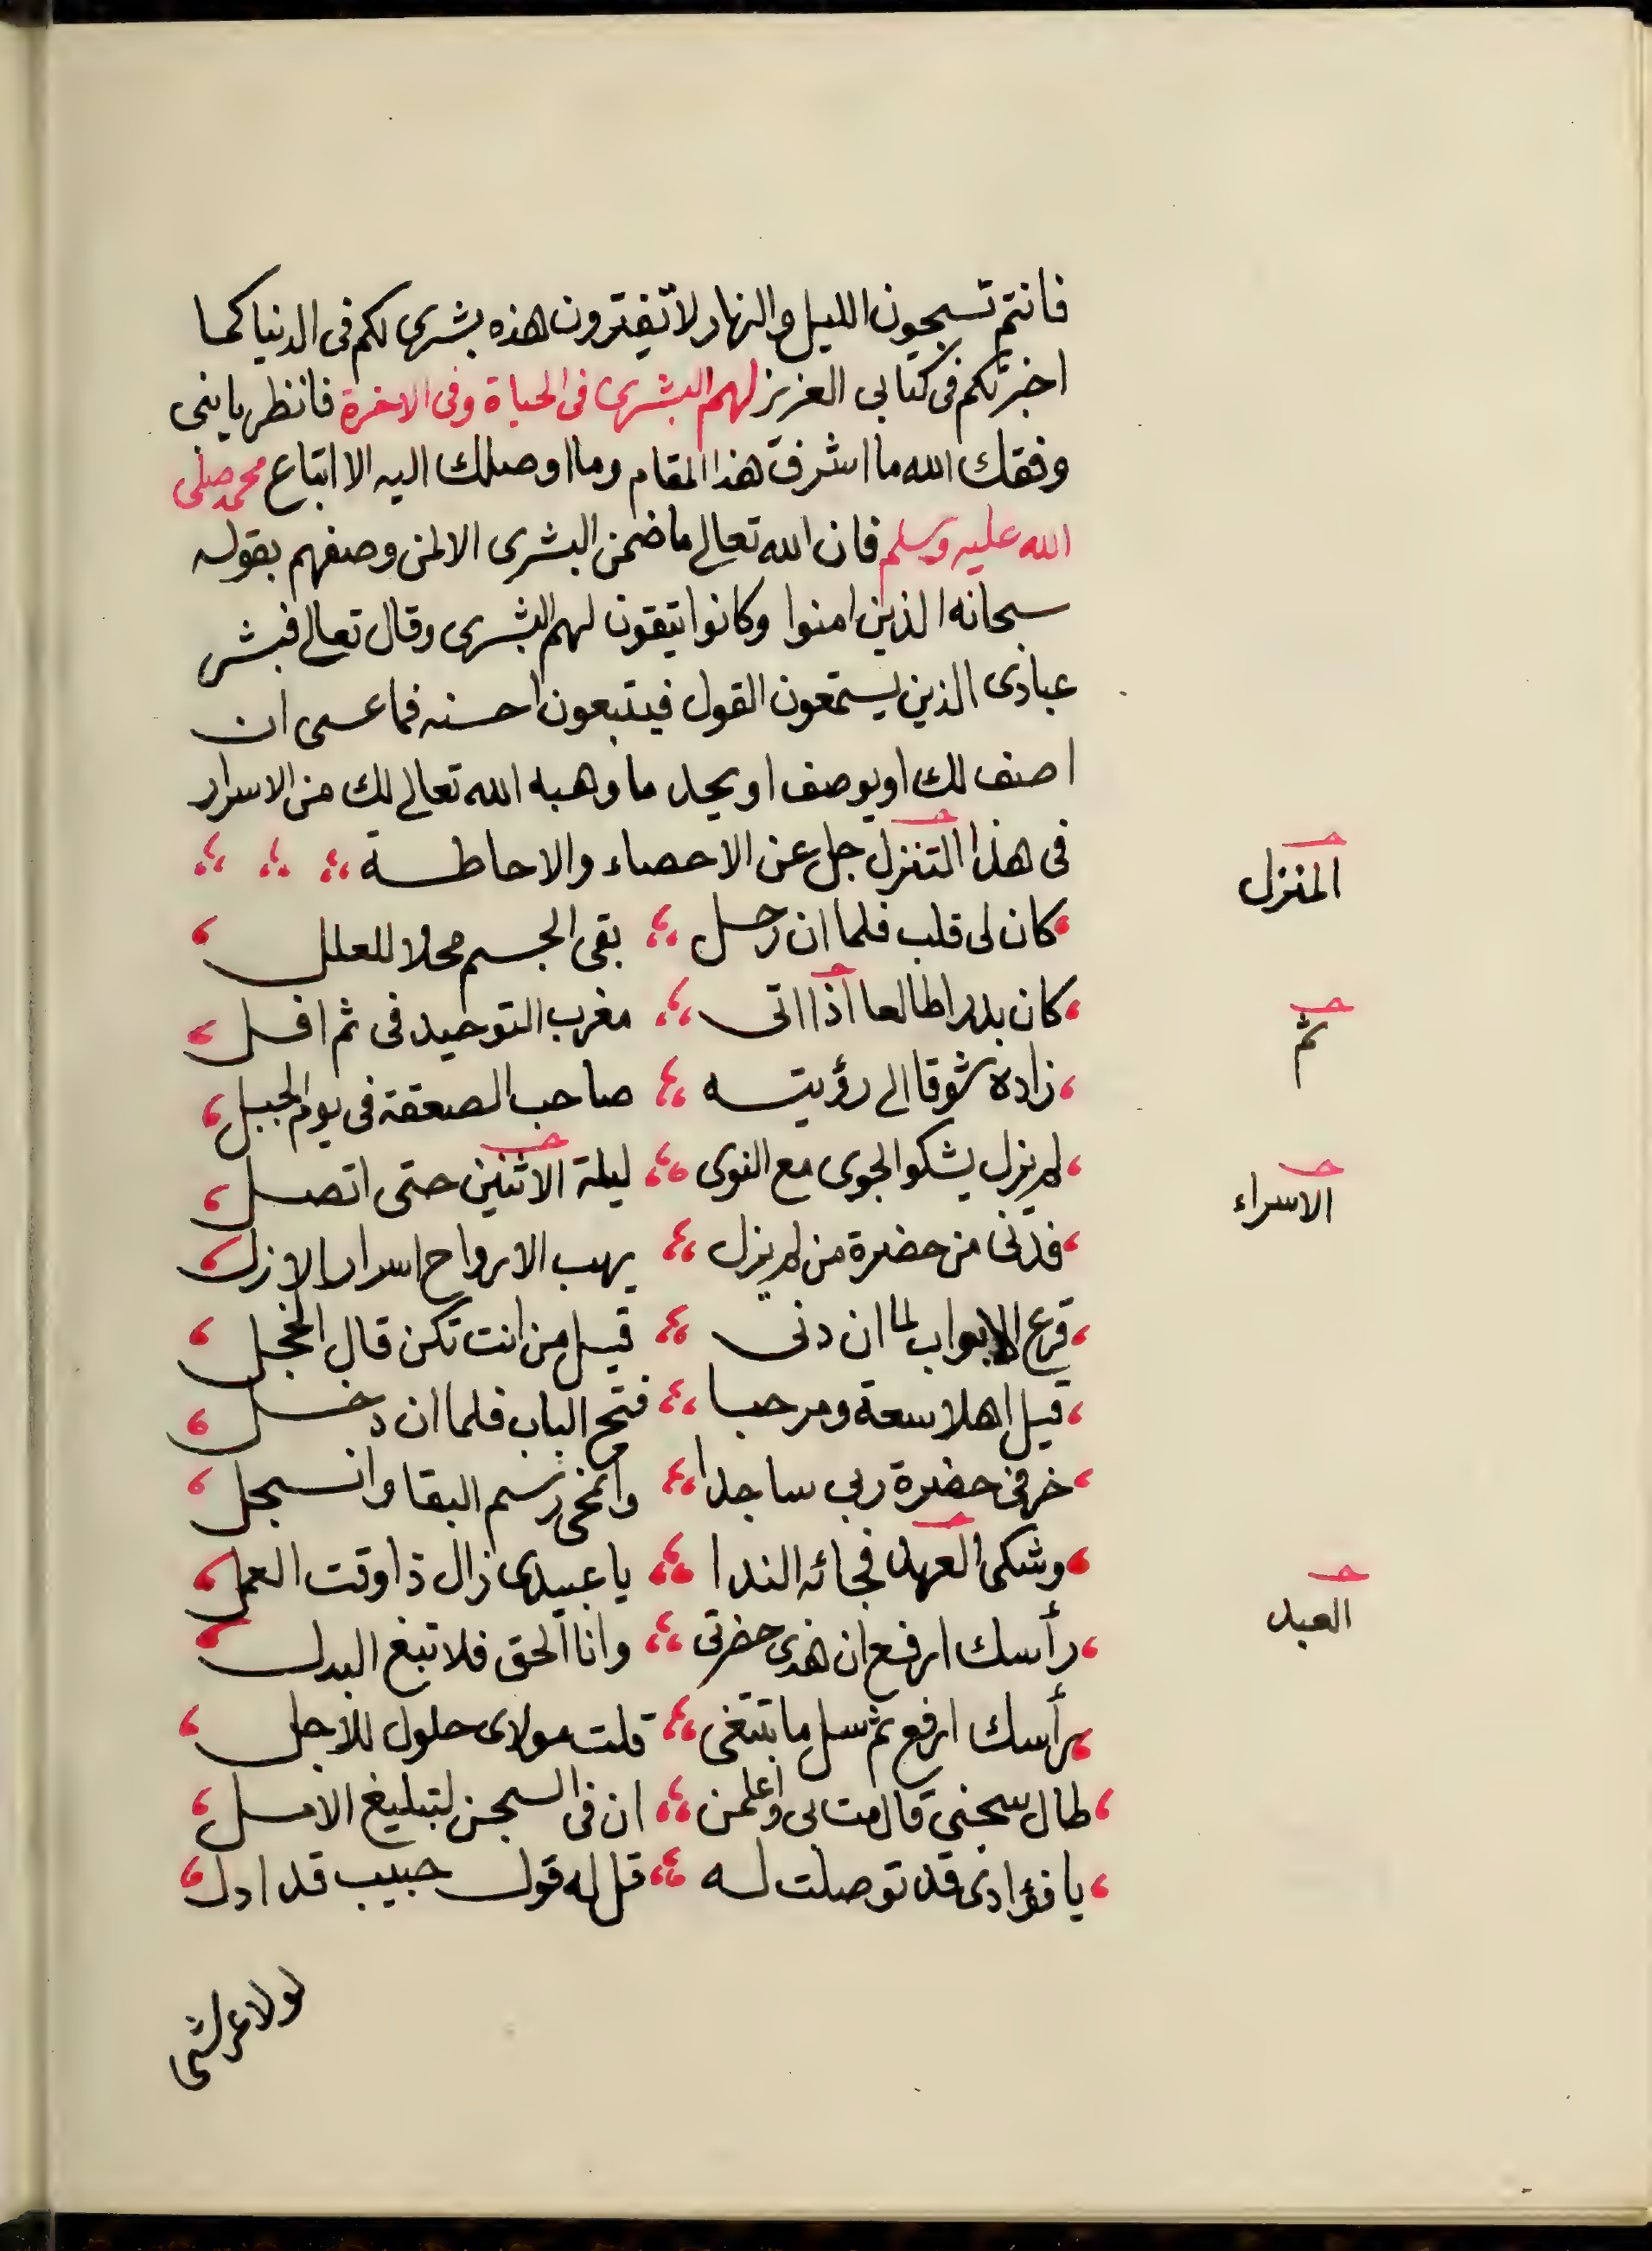 فانتم تسبحون الليل والنهار لا تفترون هذه بشرى لكم فى الدنيا كما
اخبرتكم فى كتابى العزيز لهم البشرى فى الحياة وفى الاخرة فانظر يا بنى
وفقك الله ما اشرف هذا المقام وما اوصلك اليه الا اتباع محمد صلى
الله عليه وسلم فان الله تعالى ما ضمن البشرى الا لمن وصفهم بقوله
سبحانه الذين امنوا وكانوا يتقون لهم البشرى وقال تعالى فبشر
عبادى الذين يستمعون القول فيتبعون احسنه فما عسى ان
اصف لك او يوصف او يحد ما وهبه الله تعالى لك من الاسرار
فى هذا التنزل جل عن الاحصاء والاحاطة
المنزل
كان لى قلب فلما ان رحل بقى الجسم محلا للعلل
كان بدرا طالعا اذا اتى مغرب التوحيد فى ثم افل
ثم
زاده شوقا الى رؤيته صاحب الصعقة فى يوم الجبل
لم يزل يشكو الجوى مع النوى ليلة الاثنين حتى اتصل
الاسراء
فدنى من حضرة من لم يزل يهب الارواح اسرار الازل
قرع الابواب لما ان دنى قيل من انت تكن قال الخجل
قيل اهلا سعة ومرحبا فتح الباب فلما ان دخل
خر فى حضرة ربى ساجدا وانمحى رسم البقا وانسجل
وشكى العهد فجائه الندا يا عبيدى زال ذا وقت العمل
العبد
رأسك ارفع ان هذى حضرتى وانا الحق فلا تبغ البدل
رأسك ارفع ثم سل ما تبتغى قلت مولاى حلول للاجل
طال سجنى قال مت بى واعلمن ان فى السجن لتبليغ الامل
يا فؤادى قد توصلت له قل له قول حبيب قد ادل
لولا عرشى